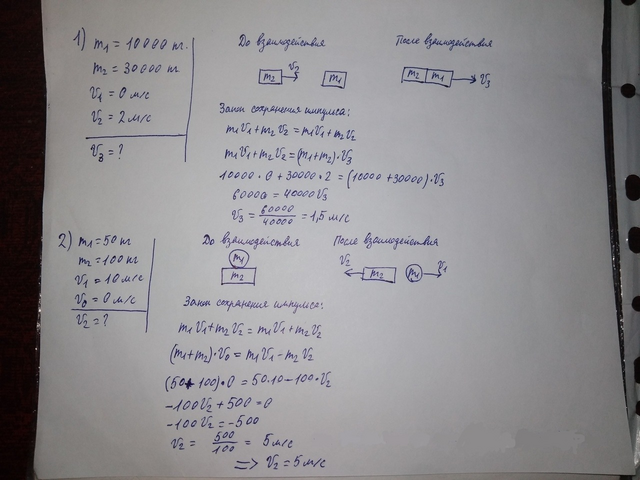 1) m₁ = 10000 кг.
m₂ = 30000 кг
V₁ = 0 м/с
V₂ = 2 м/с
V₃ = ?
До взаимодействия
После взаимодействия
m₂ V₂ m₁
m₂ m₁ V₃
Закон сохранения импульса:
m₁V₁+m₂V₂ = m₁V₁+m₂V₂
m₁V₁+m₂V₂ = (m₁+m₂)·V₃
10000 · 0 + 30000 · 2 = (10000 + 30000) · V₃
60000 = 40000V₃
V₃ = 60000/40000 = 1,5 м/с
2) m₁ = 50 кг
m₂ = 100 кг
V₁ = 10 м/с
V₀ = 0 м/с
V₂ = ?
До взаимодействия
После взаимодействия
m₁
m₂
V₂ m₂ m₁ V₁
Закон сохранения импульса:
m₁V₁+m₂V₂ = m₁V₁+m₂V₂
(m₁+m₂)·V₀ = m₁V₁ - m₂V₂
(50+100)·0 = 50·10 - 100·V₂
-100V₂ + 500 = 0
-100V₂ = -500
V₂ = 500/100 = 5 м/с
=> V₂ = 5 м/с